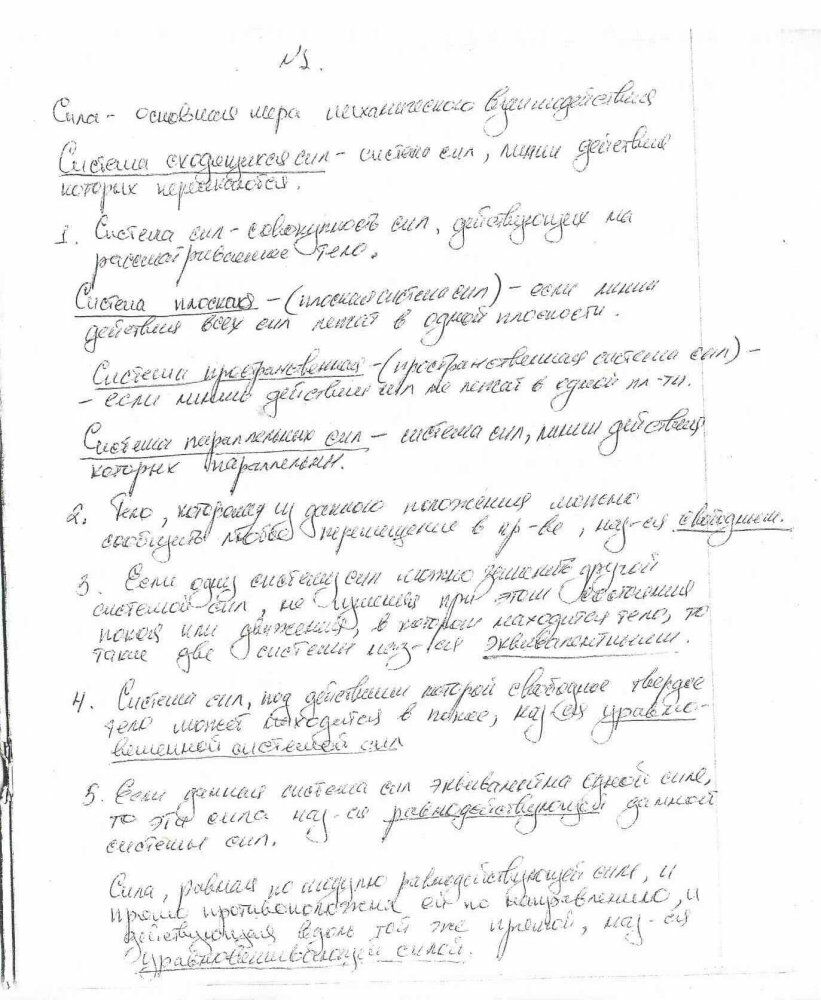 №1.
Сила - основная мера механического взаимодействия
Система сходящихся сил - система сил, линии действия
которых пересекаются.
1. Система сил - совокупность сил, действующих на
рассматриваемое тело.
Система плоская - (плоская система сил) - если линии
действия всех сил лежат в одной плоскости.
Система пространственная - (пространственная система сил) -
- если линии действия сил не лежат в одной пл-ти.
Система параллельных сил - система сил, линии действия
которых параллельны.
2. Тело, которому из данного положения можно
сообщить любое перемещение в пр-ве, наз-ся свободным.
3. Если одну систему сил можно заменить другой
системой сил, не изменяя при этом состояния
покоя или движения, в котором находится тело, то
такие две системы наз-ся эквивалентными.
4. Система сил, под действием которой свободное твердое
тело может находится в покое, наз-ся уравно-
вешенной системой сил
5. Если данная система сил эквивалентна одной силе,
то эта сила наз-ся равнодействующей данной
системы сил.
Сила, равная по модулю равнодействующей силе, и
прямо противоположна ей по направлению, и
действующая вдоль той же прямой, наз-ся
уравновешивающей силой.